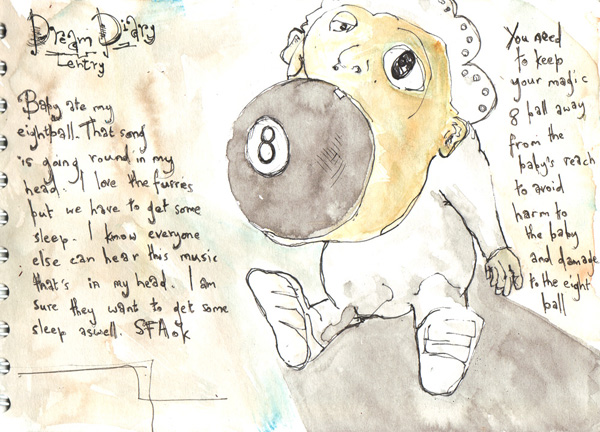 Dream Diary
Entry
Baby ate my
eightball. That song
is going round in my
head. I love the furries
but we have to get some
sleep. I know everyone
else can hear this music
that's in my head. I am
sure they want to get some
sleep aswell. SFA ok
8
You need
to keep
your magic
8 ball away
from the
baby's reach
to avoid
harm to
the baby
and damage
to the eight
ball